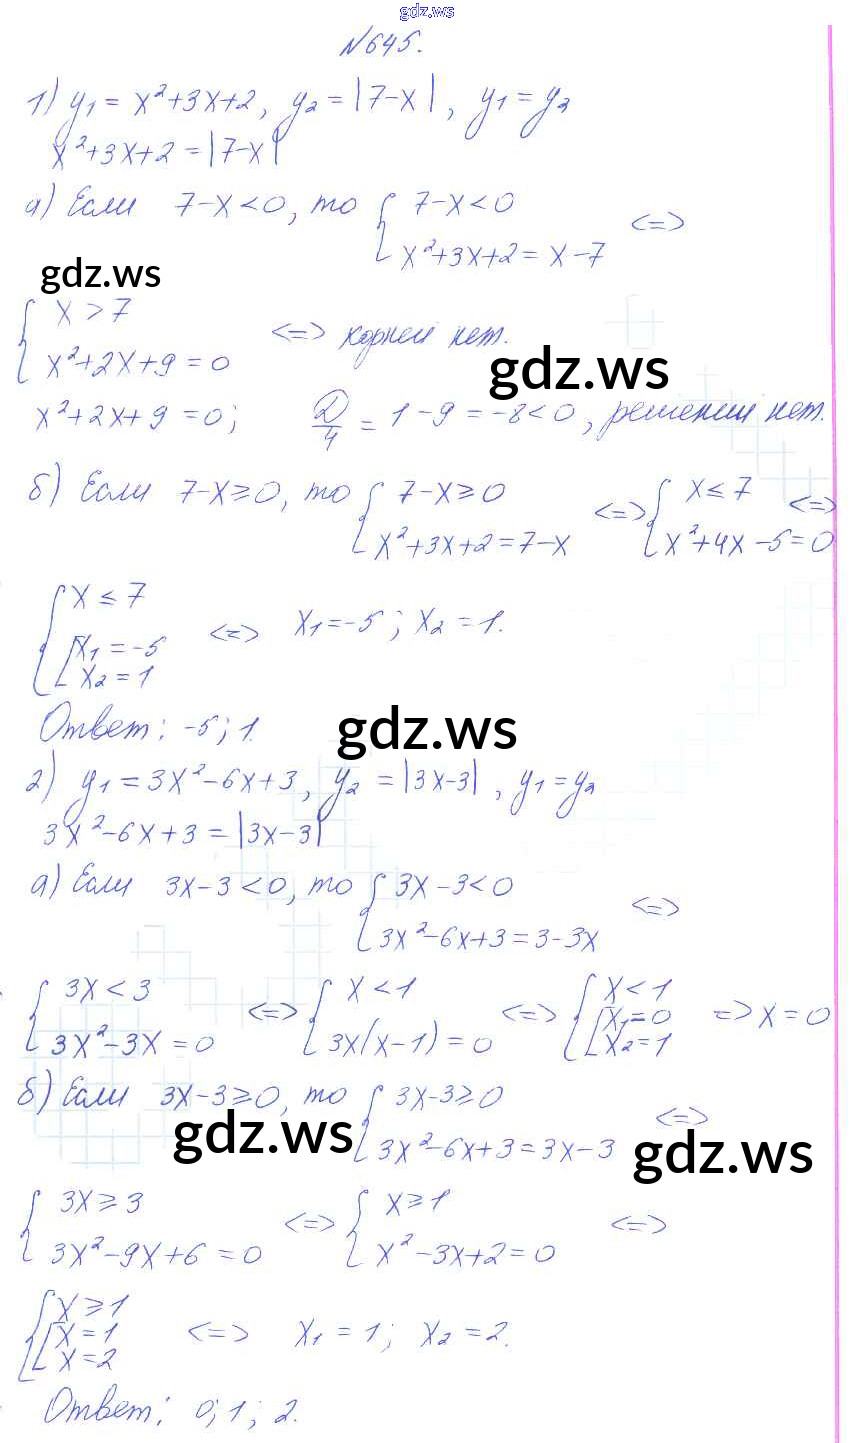 gdz.ws
№645.
1) y₁ = x²+3x+2, y₂ = |7-x|, y₁ = y₂
x²+3x+2 = |7-x|
а) Если 7-x<0, то { 7-x<0
x²+3x+2 = x-7 <=>
gdz.ws
{ x > 7
x²+2x+9 = 0 <=> корней нет.
gdz.ws
x²+2x+9 = 0; D/4 = 1-9 = -8<0, решений нет.
б) Если 7-x≥0, то { 7-x≥0
x²+3x+2 = 7-x <=> { x≤7
x²+4x-5=0 <=>
{ x ≤ 7
[ x₁ = -5
x₂ = 1 <=> x₁=-5; x₂ = 1.
Ответ: -5; 1.
gdz.ws
2) y₁ = 3x²-6x+3, y₂ = |3x-3|, y₁ = y₂
3x²-6x+3 = |3x-3|
а) Если 3x-3<0, то { 3x-3<0
3x²-6x+3 = 3-3x <=>
{ 3x < 3
3x²-3x = 0 <=> { x < 1
3x(x-1) = 0 <=> { x<1
[ x₁=0
x₂=1 => x = 0
б) Если 3x-3≥0, то { 3x-3≥0
3x²-6x+3 = 3x-3 <=>
gdz.ws
gdz.ws
{ 3x ≥ 3
3x²-9x+6 = 0 <=> { x≥1
x²-3x+2 = 0 <=>
{ x≥1
[ x=1
x=2 <=> x₁ = 1; x₂ = 2.
Ответ: 0; 1; 2.